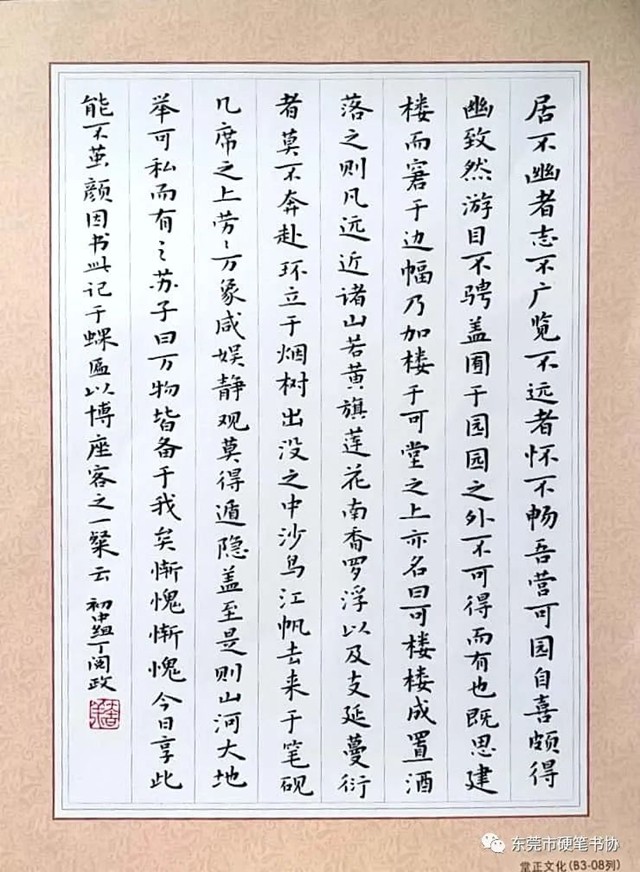 居不幽者志不广览不远者怀不畅吾营可园自喜颇得
幽致然游目不骋盖囿于园园之外不可得而有也既思建
楼而窘于边幅乃加楼于可堂之上亦名曰可楼楼成置酒
落之则凡远近诸山若黄旗莲花南香罗浮以及支延蔓衍
者莫不奔赴环立于烟树出没之中沙鸟江帆去来于笔砚
几席之上劳〻万象咸娱静观莫得遁隐盖至是则山河大地
举可私而有〻苏子曰万物皆备于我矣惭愧惭愧今日享此
能不茧颜因书此记于蜾匾以博座客之一粲云 初中组丁闵政
东莞市硬笔书协
常正文化(B3-08列)